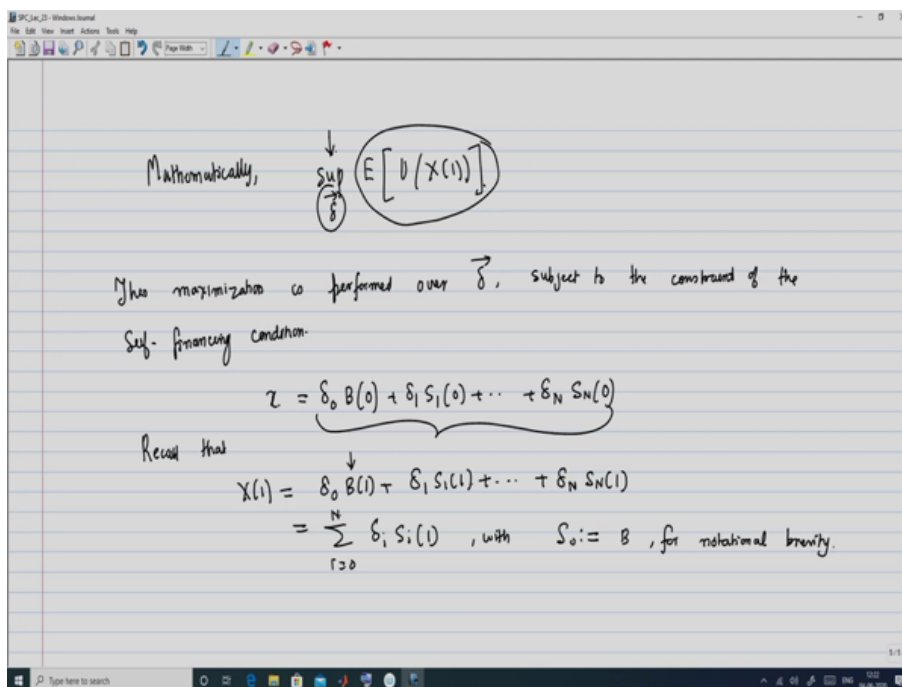 SPC_Lec_23 - Windows Journal
File Edit View Insert Actions Tools Help
Page Width
Mathematically, sup E[U(X(1))]
δ
This maximization is performed over δ, subject to the constraint of the
Self-financing condition.
x = δ₀ B(0) + δ₁ S₁(0) + ⋯ + δ_N S_N(0)
Recall that
X(1) = δ₀ B(1) + δ₁ S₁(1) + ⋯ + δ_N S_N(1)
= Σ_{i=0}^{N} δᵢ Sᵢ(1), with S₀ := B, for notational brevity.
5/5
Type here to search
ENG 12:22